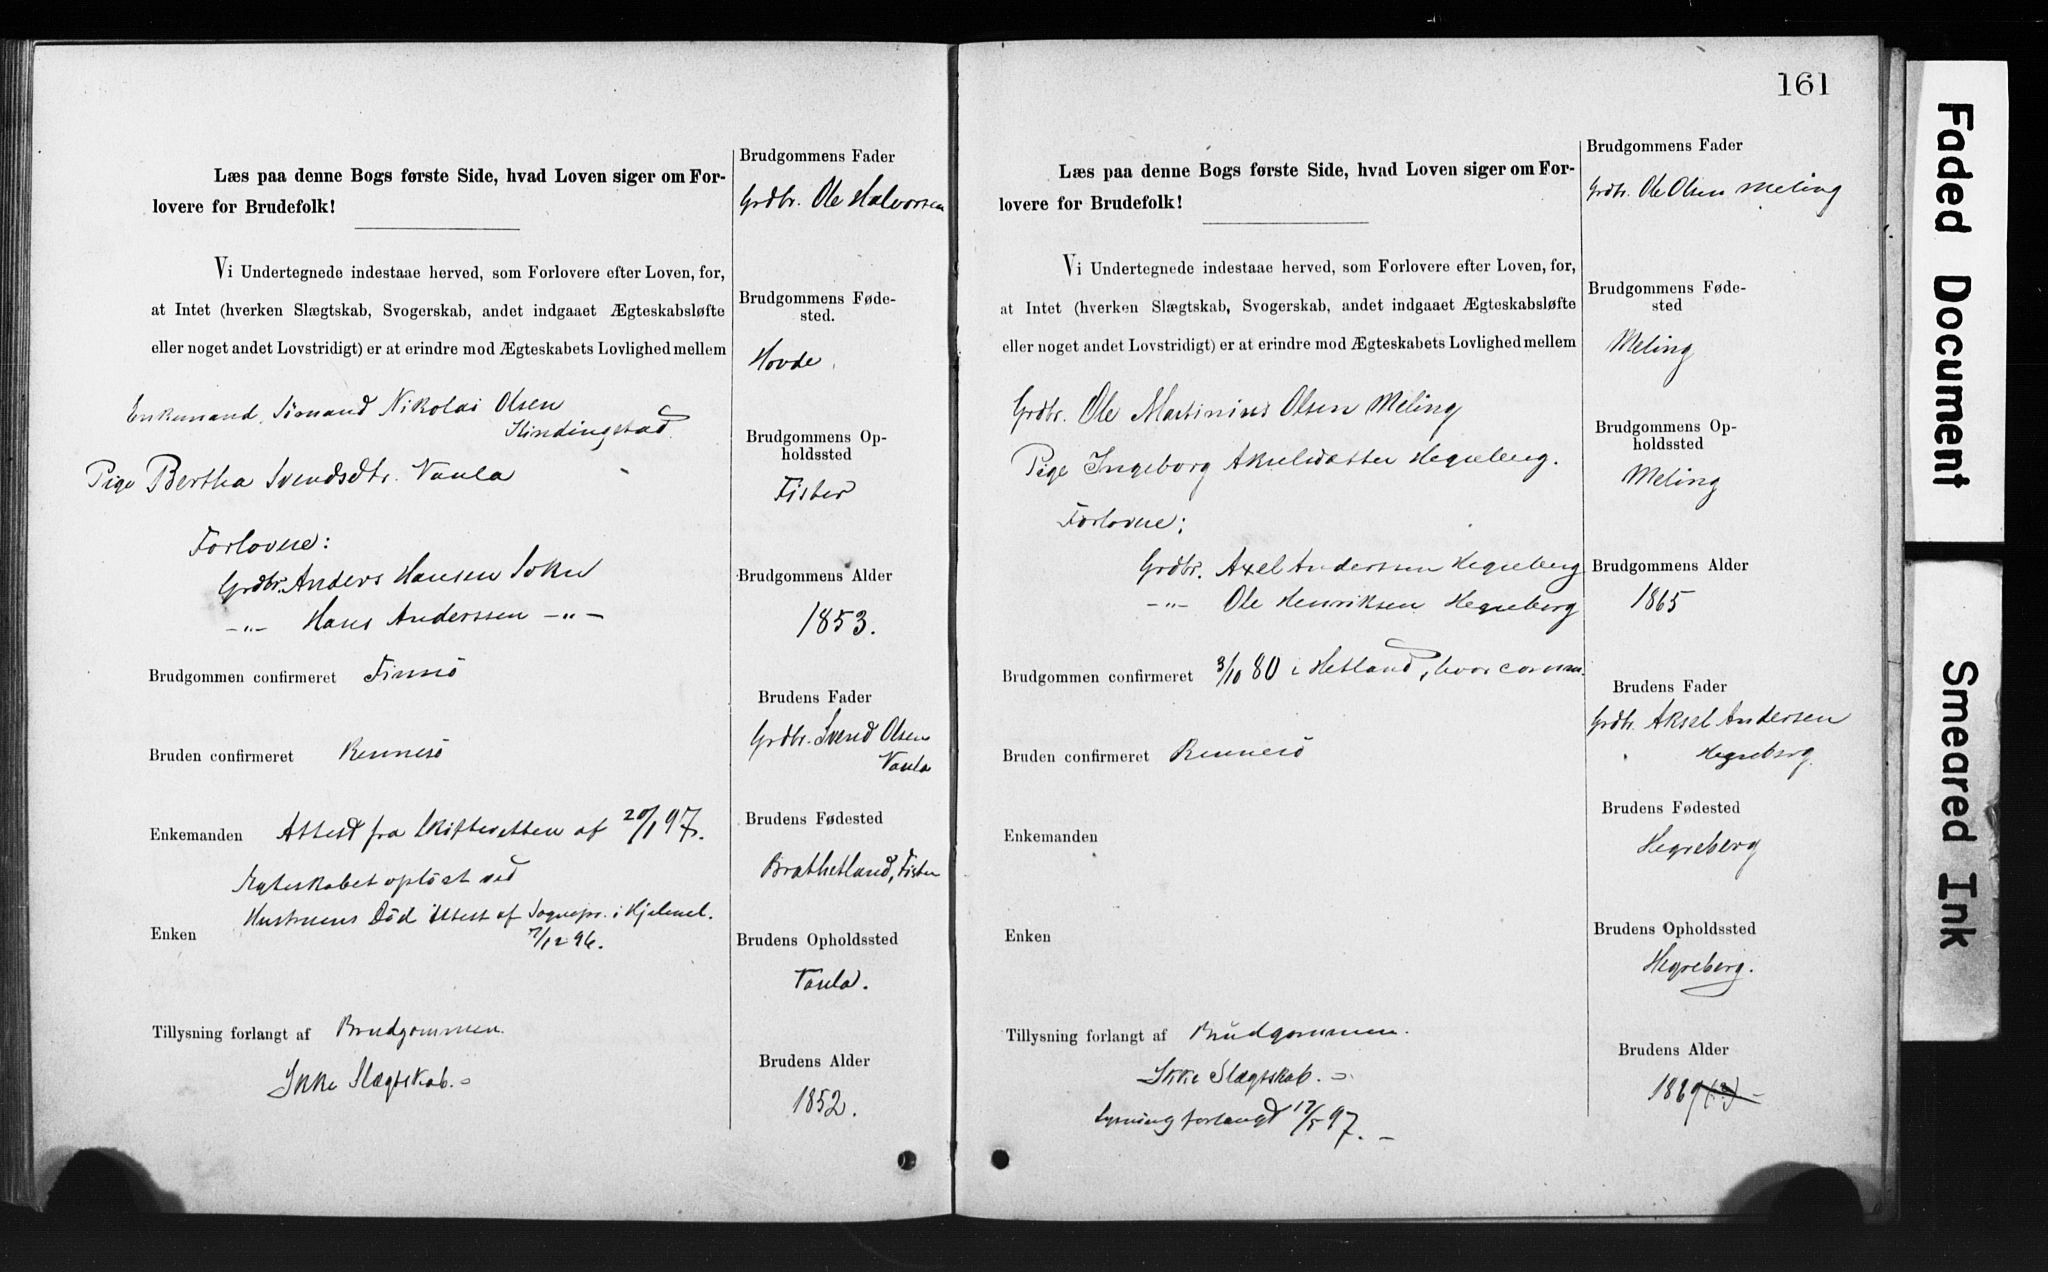 Læs paa denne Bogs første Side, hvad Loven siger om For-
lovere for Brudefolk!
Vi Undertegnede indestaae herved, som Forlovere efter Loven, for,
at Intet (hverken Slægtskab, Svogerskab, andet indgaaet Ægteskabsløfte
eller noget andet Lovstridigt) er at erindre mod Ægteskabets Lovlighed mellem
Enkemand, Sömand Nikolai Olsen
Kindingstad
Pige Bertha Svendsdtr. Vaula
Forlovere:
Grdbr. Anders Hansen Sokn
-"- Hans Anderssen -"-
Brudgommen confirmeret Finnö
Bruden confirmeret Rennesö
Enkemanden Attest fra Skifteretten af 20/1 97.
Egteskabet oplöst ved
Hustruens Död Attest af Sognepr. i Hjelmel.
Enken 7/12 96.
Tillysning forlangt af Brudgommen.
Ikke Slægtskab. -
Brudgommens Fader
Grdbr. Ole Halvorsen
Brudgommens Føde-
sted.
Hovde.
Brudgommens Op-
holdssted
Fister
Brudgommens Alder
1853.
Brudens Fader
Grdbr. Svend Olsen
Vaula
Brudens Fødested
Brathetland, Fister
Brudens Opholdssted
Vaula.
Brudens Alder
1852.
161
Læs paa denne Bogs første Side, hvad Loven siger om For-
lovere for Brudefolk!
Vi Undertegnede indestaae herved, som Forlovere efter Loven, for,
at Intet (hverken Slægtskab, Svogerskab, andet indgaaet Ægteskabsløfte
eller noget andet Lovstridigt) er at erindre mod Ægteskabets Lovlighed mellem
Grdbr. Ole Martinius Olsen Meling
Pige Ingeborg Akselsdatter Hegreberg.
Forlovere:
Grdbr. Axel Anderssen Hegreberg
-"- Ole Henriksen Hegreberg
Brudgommen confirmeret 3/10 80 i Hetland, hvor
Bruden confirmeret Rennesö
Enkemanden
Enken
Tillysning forlangt af Brudgommen.
Ikke Slægtskab. -
Lysning forlangt 17/5 97. -
Brudgommens Fader
Grdbr. Ole Olsen Meling
Brudgommens Føde-
sted
Meling
Brudgommens Op-
holdssted
Meling
Brudgommens Alder
1865
Brudens Fader
Grdbr. Aksel Andersen
Hegreberg.
Brudens Fødested
Hegreberg
Brudens Opholdssted
Hegreberg.
Brudens Alder
1869 (?)
Faded Document
Smeared Ink